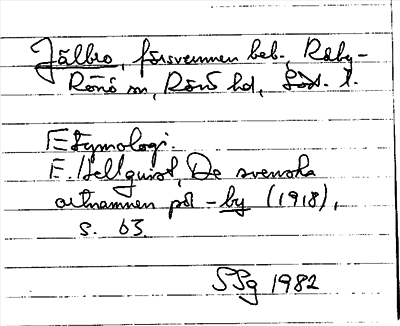 Jälbro, försvunnen beb., Råby-
Rönö sn, Rönö hd, Söd. l.
Etymologi.
E. Hellquist, De svenska
ortnamnen på -by (1918),
s. 63.
SSg 1982